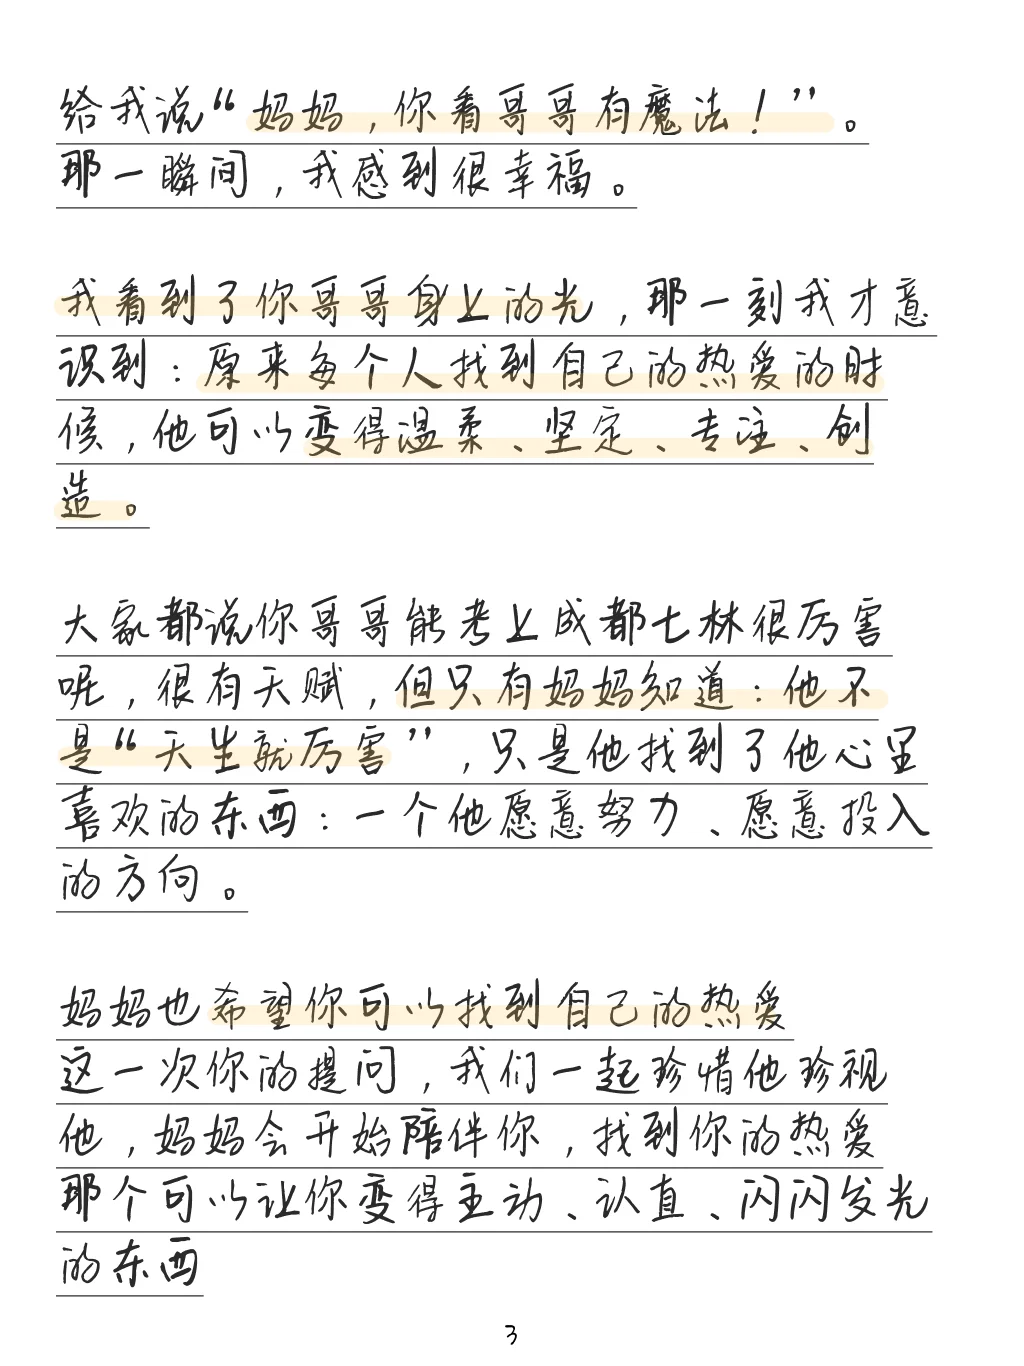 给我说“妈妈，你看哥哥有魔法！”。
那一瞬间，我感到很幸福。
我看到了你哥哥身上的光，那一刻我才意
识到：原来每个人找到自己的热爱的时
候，他可以变得温柔、坚定、专注、创
造。
大家都说你哥哥能考上成都七林很厉害
呢，很有天赋，但只有妈妈知道：他不
是“天生就厉害”，只是他找到了他心里
喜欢的东西：一个他愿意努力、愿意投入
的方向。
妈妈也希望你可以找到自己的热爱
这一次你的提问，我们一起珍惜他珍视
他，妈妈会开始陪伴你，找到你的热爱
那个可以让你变得主动、认真、闪闪发光
的东西
3